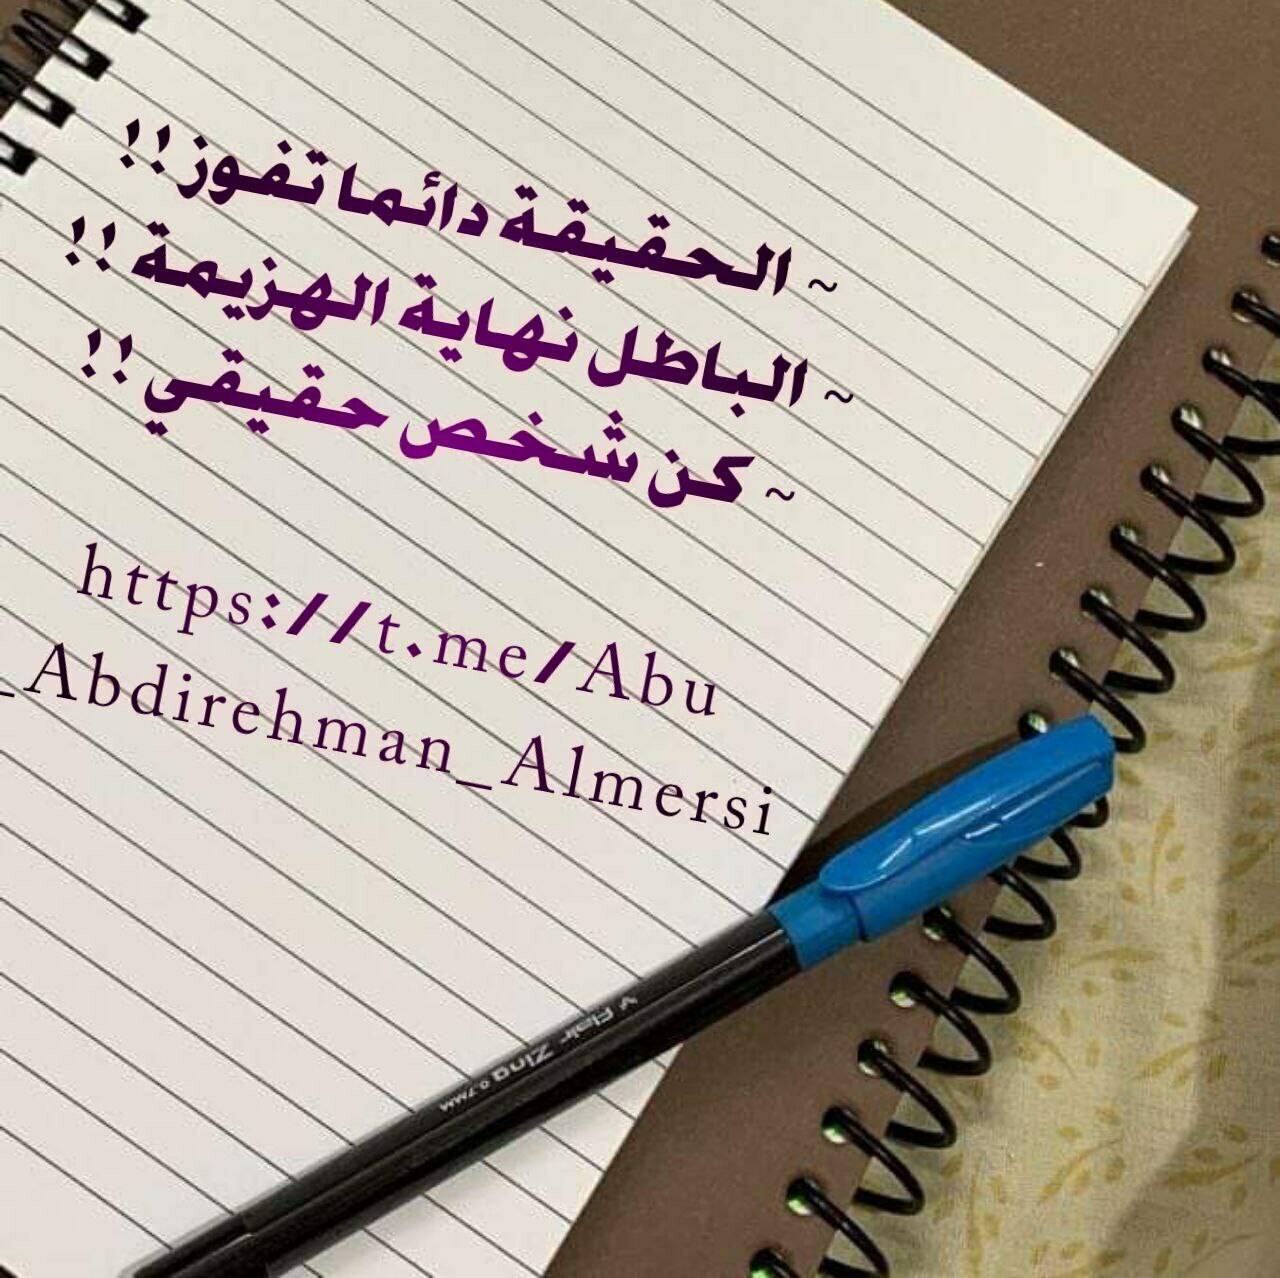 ~ الحقيقة دائما تفوز!!
~ الباطل نهاية الهزيمة !!
~ كن شخص حقيقي !!
https://t.me/Abu
_Abdirehman_Almersi
Flair Zing 0.7MM